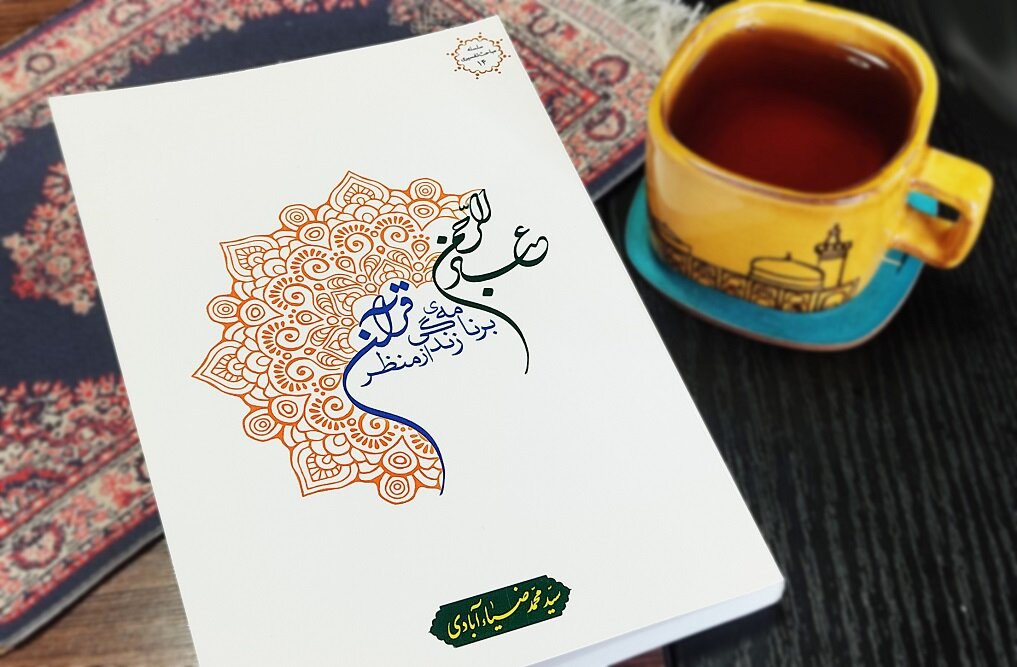 سلسله
مباحث تفسیری
۱۴
عباد الرّحمن
برنامه‌ی
زندگی
از منظر
قرآن
سیّد محمّد ضیاءآبادی